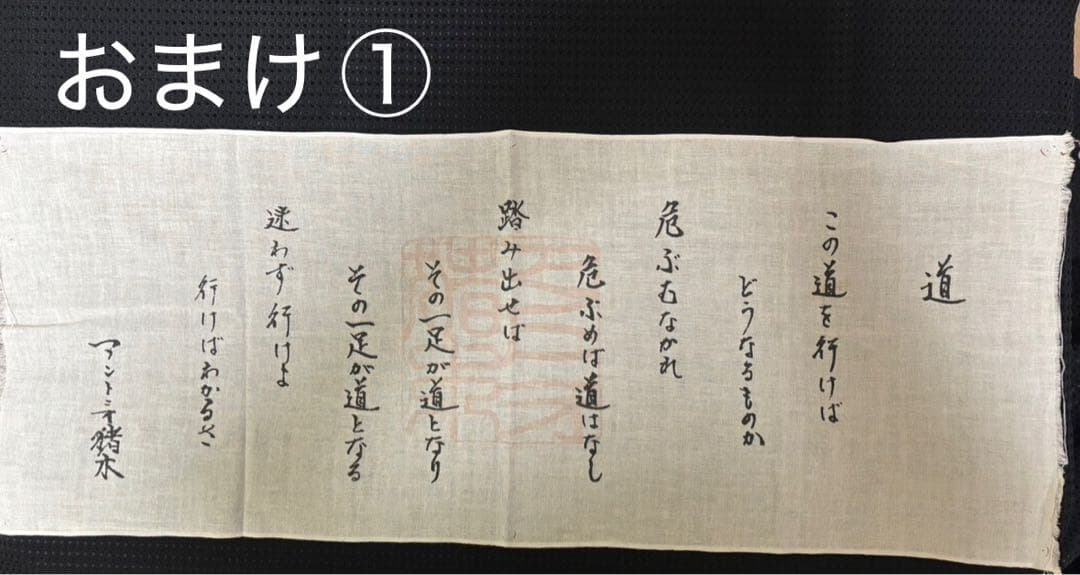 おまけ①
道
この道を行けば
どうなるものか
危ぶむなかれ
危ぶめば道はなし
踏み出せば
その一足が道となり
その一足が道となる
迷わず行けよ
行けばわかるさ
アントニオ猪木